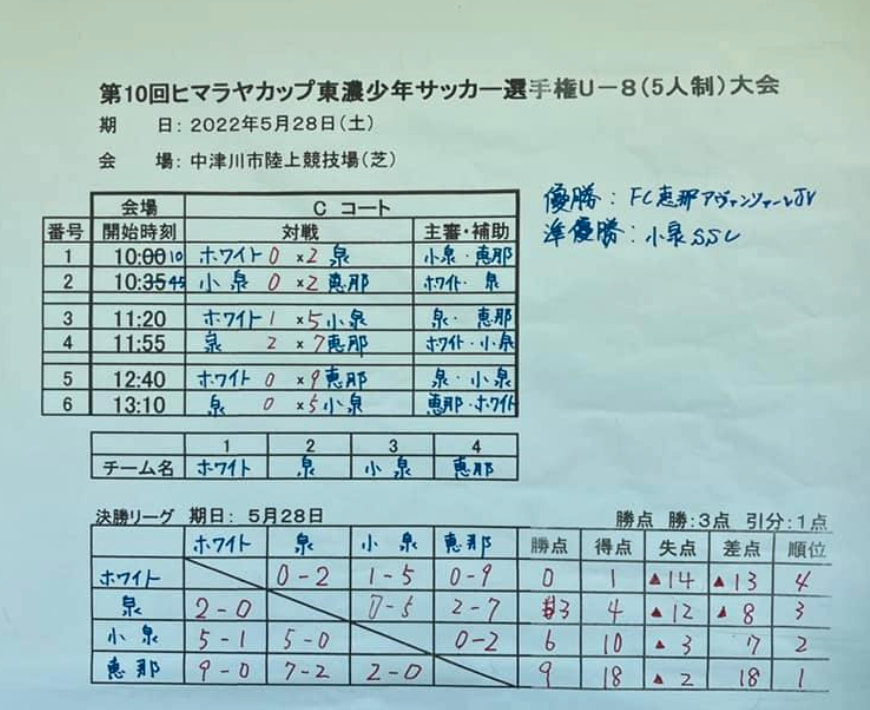 第10回ヒマラヤカップ東濃少年サッカー選手権U－8(5人制)大会
期　　日：2022年5月28日(土)
会　　場：中津川市陸上競技場(芝)
優勝：FC恵那アヴァンツァーレJY
準優勝：小泉SSC
会場 C コート
番号 開始時刻 対戦 主審・補助
1 10:00 10 ホワイト 0 ×2 泉 小泉・恵那
2 10:35 45 小泉 0 ×2 恵那 ホワイト・泉
3 11:20 ホワイト 1 ×5 小泉 泉・恵那
4 11:55 泉 2 ×7 恵那 ホワイト・小泉
5 12:40 ホワイト 0 ×9 恵那 泉・小泉
6 13:10 泉 0 ×5 小泉 恵那・ホワイト
1 2 3 4
チーム名 ホワイト 泉 小泉 恵那
決勝リーグ 期日：5月28日 勝点 勝：3点 引分：1点
ホワイト 泉 小泉 恵那 勝点 得点 失点 差点 順位
ホワイト 0-2 1-5 0-9 0 1 ▲14 ▲13 4
泉 2-0 0-5 2-7 3 4 ▲12 ▲8 3
小泉 5-1 5-0 0-2 6 10 ▲3 7 2
恵那 9-0 7-2 2-0 9 18 ▲2 18 1